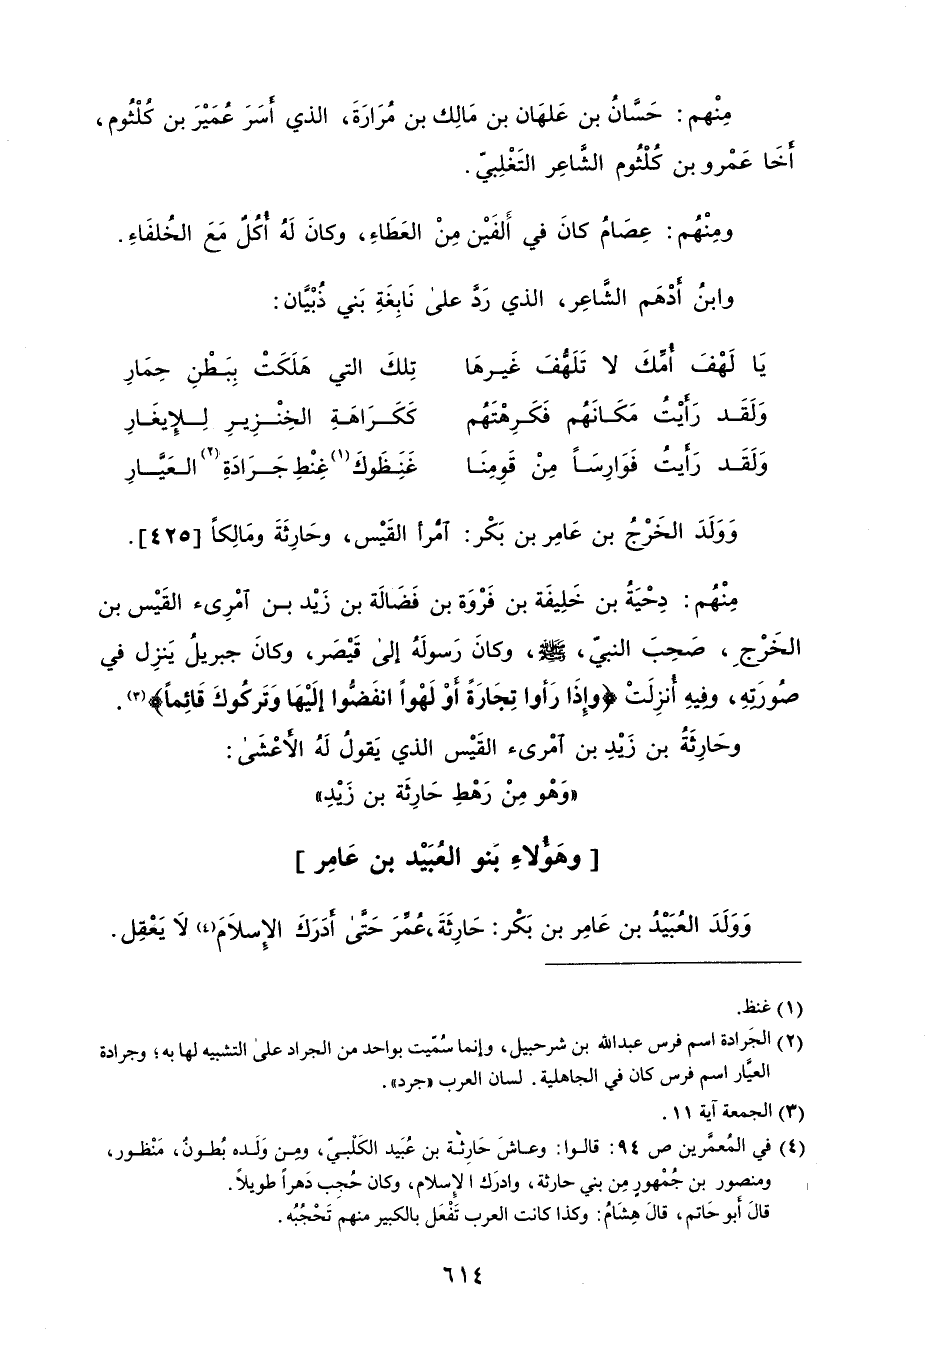 مِنْهم : حَسَّانُ بن عَلهَان بن مَالِك بن مُرَارَةَ، الذي أَسَرَ عُمَيْرَ بن كُلْثُوم،
أَخَا عَمْرو بن كُلْثُوم الشَّاعِر التَغْلِبيّ.
ومِنْهُم : عِصَامُ كانَ في أَلفَيْن مِنْ العَطَاءِ، وكانَ لَهُ أُكُلٌ مَعَ الخُلفَاءِ.
وابنُ أَدْهَم الشَّاعِر، الذي رَدَّ علىٰ نَابِغَةِ بَني ذُبْيَّان :
يَا لَهْفَ أُمِّكَ لا تَلَهُّفَ غَيرهَا تِلكَ التي هَلَكَتْ بِبَطْنِ حِمَارِ
وَلَقَد رَأَيْتُ مَكَانَهُم فَكَرِهْتَهُم كَكَرَاهَةِ الخِنْزِيرِ لِلإيغَارِ
وَلَقَد رَأَيتُ فَوَارِسَاً مِنْ قَومِنَا غَنَظوكَ(١) غِنْطِ جَرَادَةِ(٢) العَيَّارِ
وَوَلَدَ الخَرْجُ بن عَامِر بن بَكْر : آمْرأ القَيْس، وحَارِثَةَ ومَالِكاً [٤٢٥].
مِنْهُم : دِحْيَةُ بن خَلِيفَة بن فَرْوَة بن فَضَالَة بن زَيْد بن آمْرِىء القَيْس بن
الخَرْجِ، صَحِبَ النبيّ، ﷺ، وكانَ رَسولَهُ إلىٰ قَيْصَر، وكانَ جبريلُ يَنزِل في
صُورَتِهِ، وفِيهِ أُنزِلَتْ ﴿وإذَا رَأوا تِجَارَةً أَوْ لَهْواً انفَضُّوا إلَيْهَا وَتَركُوكَ قَائِماً﴾(٣).
وحَارِثَةُ بن زَيْدِ بن آمْرِىء القَيْس الذي يَقولُ لَهُ الأَعْشَىٰ :
«وَهْو مِنْ رَهْطِ حَارِثَة بن زَيْدِ»
[ وهَؤُلاءِ بَنو العُبَيْد بن عَامِر ]
وَوَلَدَ العُبَيْدُ بن عَامِر بن بَكْر : حَارِثَةَ، عُمِّرَ حَتَّىٰ أَدَرَكَ الإسلَامَ(٤) لَا يَعْقِل.
(١) غنظ.
(٢) الجَرادة اسم فرس عبدالله بن شرحبيل، وإنما سُمّيت بواحد من الجراد علىٰ التشبيه لها به؛ وجرادة
العيَّار اسم فرس كان في الجاهلية. لسان العرب «جرد».
(٣) الجمعة آية ١١.
(٤) في المُعمَّرين ص ٩٤ : قالوا : وعاشَ حَارِثَة بن عُبَيد الكَلْبيّ، ومِن وَلَده بُطونُ، مَنْظور،
ومنصور بن جُمْهورٍ مِن بني حارثة، وادرَك الإسلام، وكان حُجِب دَهراً طويلاً.
قالَ أَبو حَاتم، قالَ هِشَامُ : وكذا كانت العرب تَفْعَل بالكبير منهم تَحْجُبُه.
٦١٤